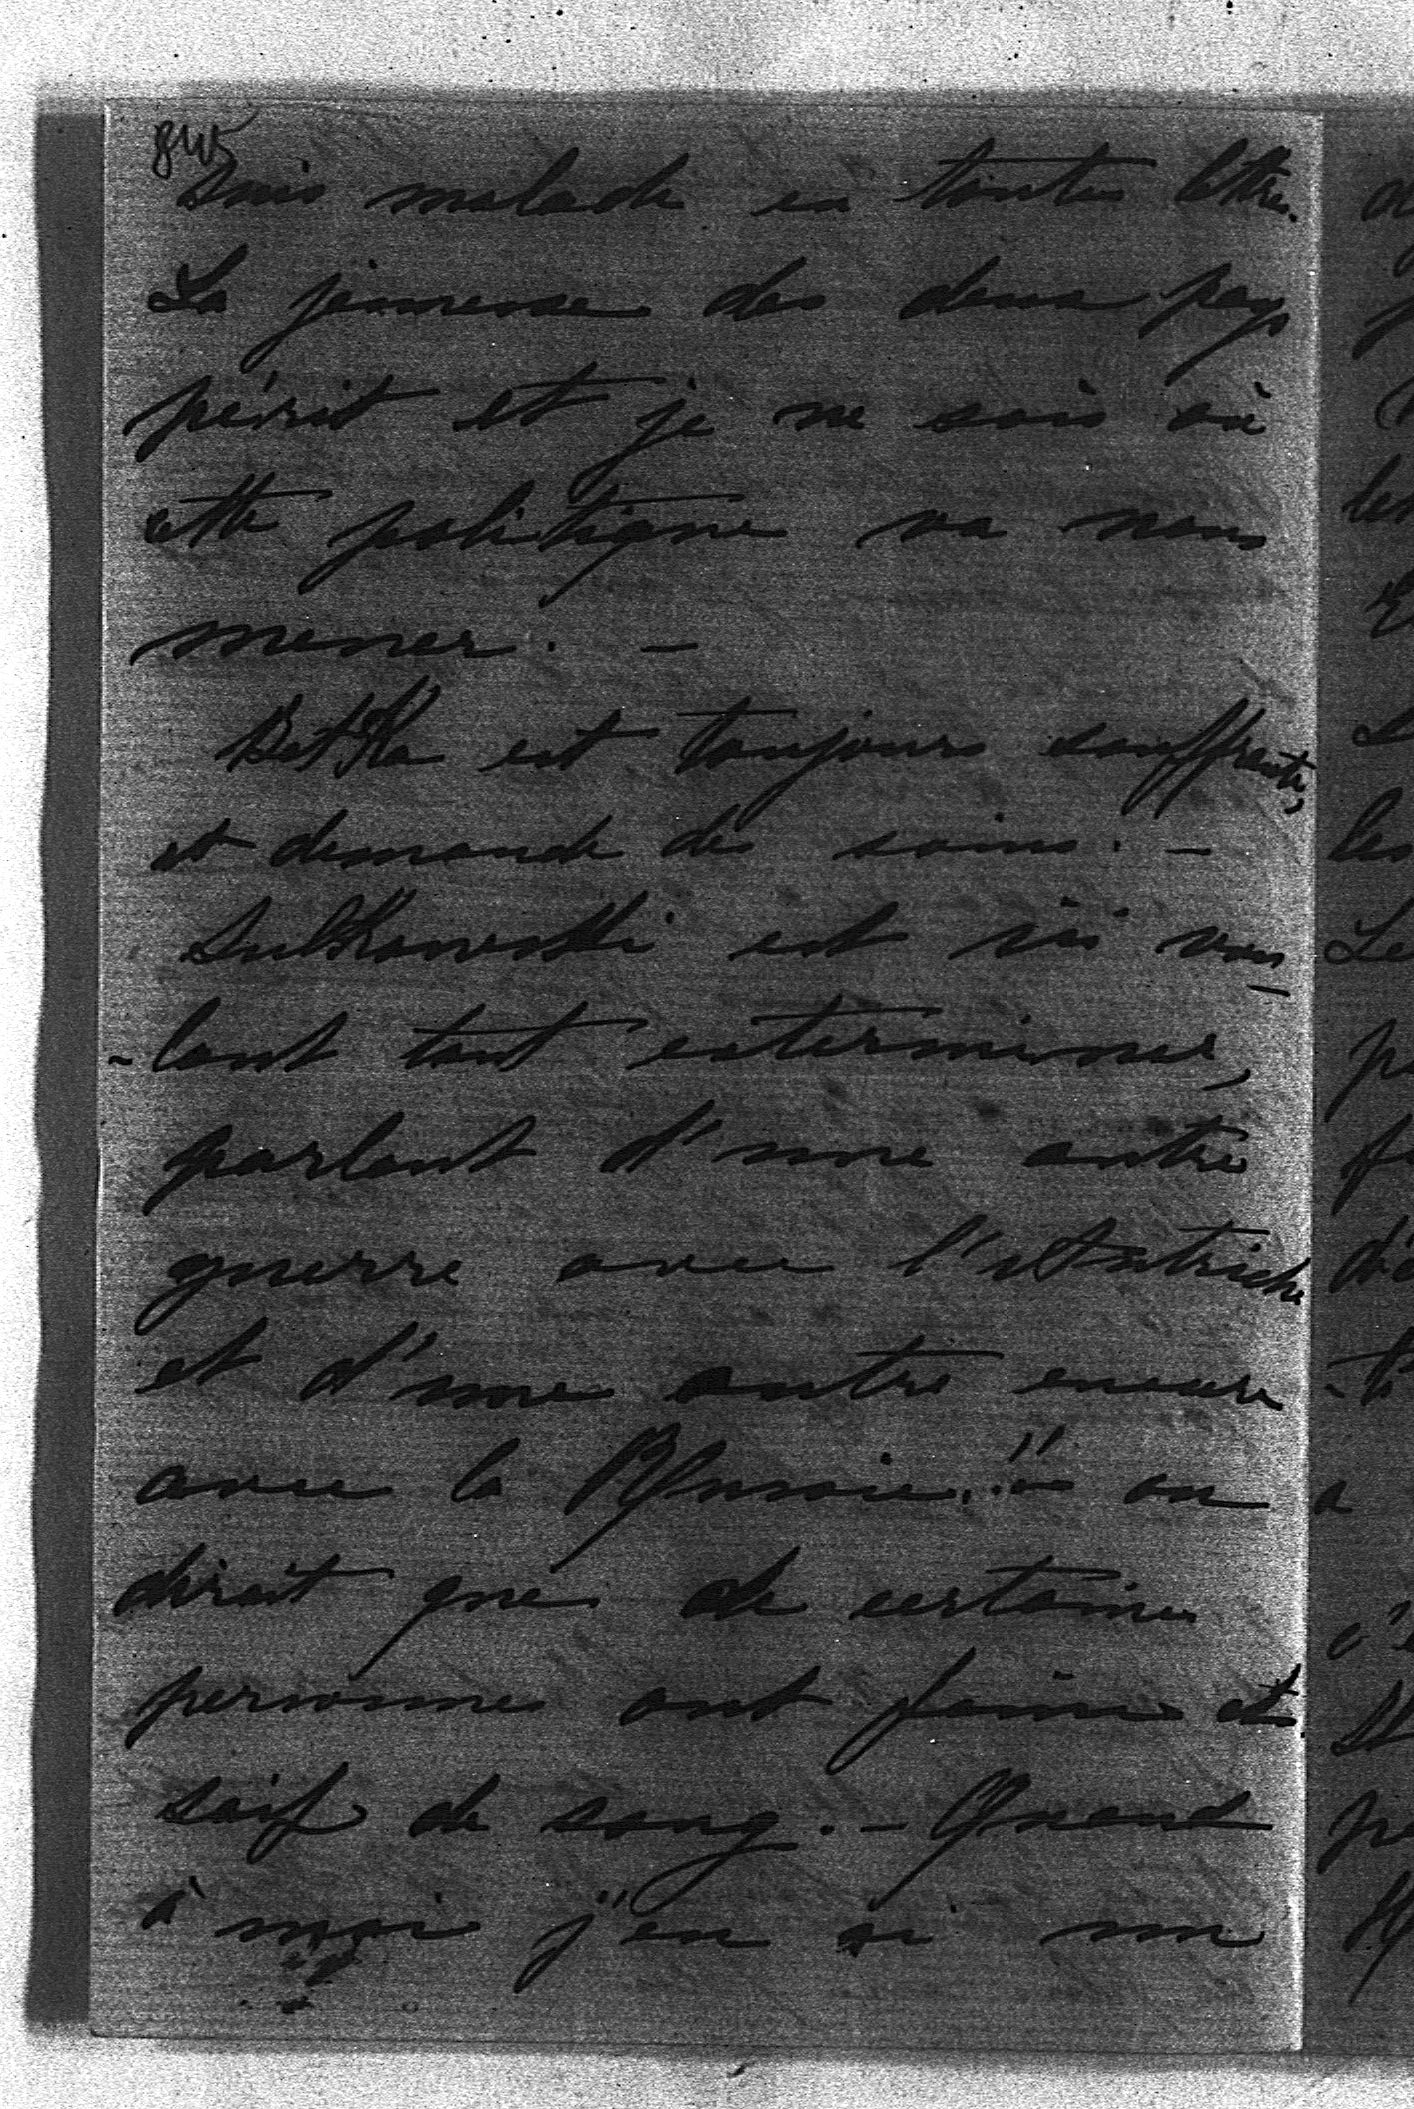 suis malade en toutes lettres.
La jeunesse des deux pays
périt et je ne sais où
cette politique va nous
mener. –
Betka est toujours souffrante,
et demande des soins. –
Sulkowski est ici vou-
-lant tout exterminer,
parlant d'une autre
guerre avec l'Autriche
et d'une autre encore
avec la Russie..!! on
dirait que de certaines
personnes ont faim et
soif de sang. – Quand
à moi j'en ai un